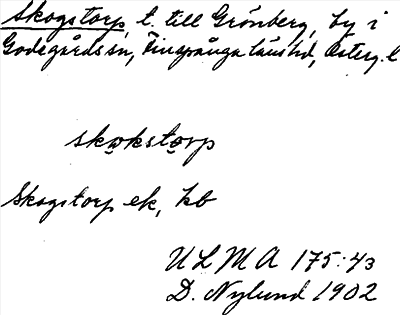 Skogstorp, t. till Grönberg, by i
Godegårds sn, Finspånga läns hd, Österg. l
skokstorp
Skogstorp ek, kb
ULMA 175:43
D. Nylund 1902